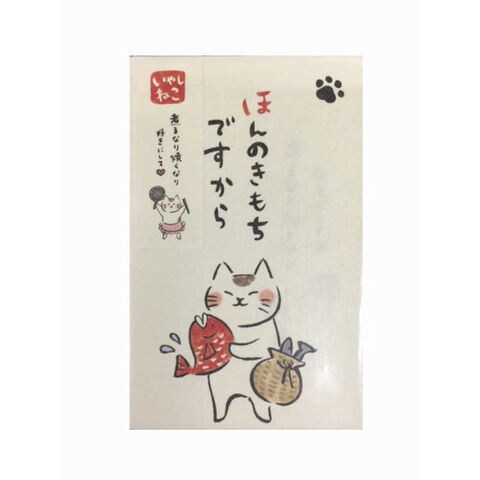 ほんのきもち
ですから
いやし
ねこ
煮るなり焼くなり
好きにして♥